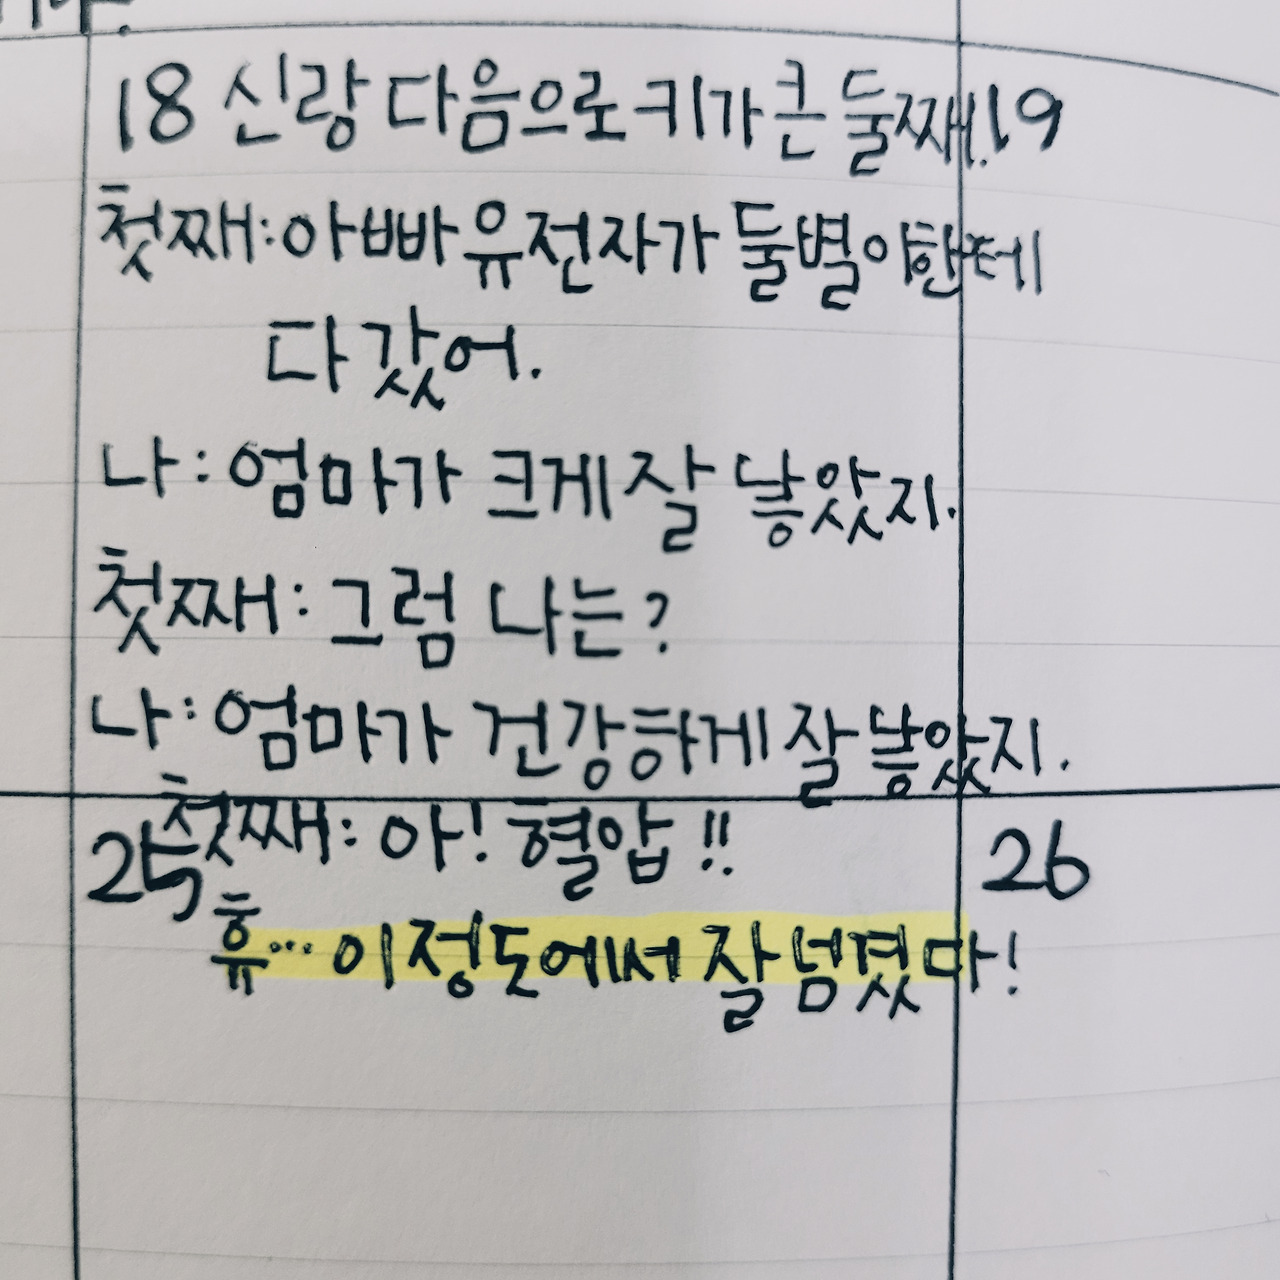 18 신랑 다음으로 키가 큰 둘째. 19
첫째: 아빠 유전자가 둘별이한테
다 갔어.
나: 엄마가 크게 잘 낳았지.
첫째: 그럼 나는?
나: 엄마가 건강하게 잘 낳았지.
첫째: 아! 혈압!!
25 26
휴... 이 정도에서 잘 넘겼다!